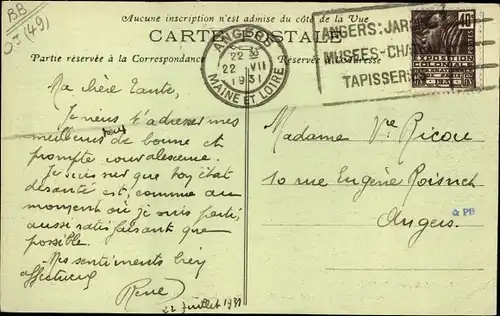 BB
OJ (49)
Aucune inscription n'est admise du côté de la Vue
CARTE POSTALE
Partie réservée à la Correspondance
ANGERS
22 VII
1931
MAINE ET LOIRE
ANGERS: JAR
MUSÉES-CHA
TAPISSERI
40
EXPOSITION
Ma chère Tante,
Je viens t'adresser mes
meilleurs vœux de bonne et
prompte convalescence.
Je suis sûr que ton état
de santé est, comme au
moment où je suis parti,
aussi satisfaisant que
possible.
Mes sentiments bien
affectueux
René
22 Juillet 1931
Madame Vve Ricou
10 rue Eugène
Angers.
& PB